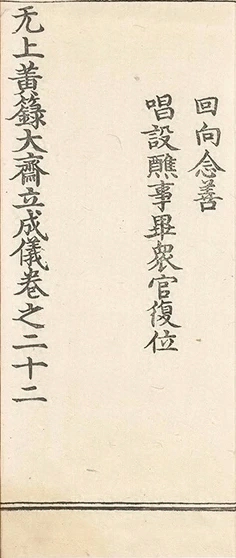 回向念善
唱設醮事畢衆官復位
无上黃籙大齋立成儀卷之二十二